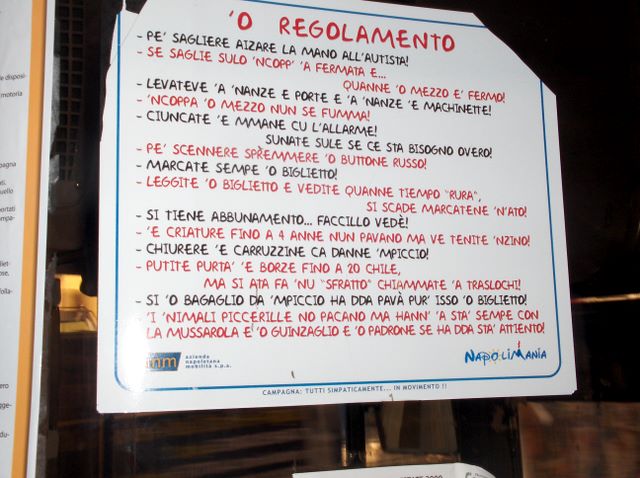 'O REGOLAMENTO
- PE' SAGLIERE AIZARE LA MANO ALL'AUTISTA!
- SE SAGLIE SULO 'NCOPP' 'A FERMATA E...
QUANNE 'O MEZZO E' FERMO!
- LEVATEVE 'A 'NANZE E PORTE E 'A 'NANZE 'E MACHINETTE!
- 'NCOPPA 'O MEZZO NUN SE FUMMA!
- CIUNCATE 'E MMANE CU L'ALLARME!
SUNATE SULE SE CE STA BISOGNO OVERO!
- PE' SCENNERE SPREMMERE 'O BUTTONE RUSSO!
- MARCATE SEMPE 'O BIGLIETTO!
- LEGGITE 'O BIGLIETTO E VEDITE QUANNE TIEMPO "RURA",
SI SCADE MARCATENE 'N'ATO!
- SI TIENE ABBUNAMENTO... FACCILLO VEDÈ!
- 'E CRIATURE FINO A 4 ANNE NUN PAVANO MA VE TENITE 'NZINO!
- CHIURERE 'E CARRUZZINE CA DANNE 'MPICCIO!
- PUTITE PURTA' 'E BORZE FINO A 20 CHILE,
MA SI ATA FA 'NU "SFRATTO" CHIAMMATE 'A TRASLOCHI!
- SI 'O BAGAGLIO DA 'MPICCIO HA DDA PAVÀ PUR' ISSO 'O BIGLIETTO!
- 'I 'NIMALI PICCERILLE NO PACANO MA HANN' 'A STA' SEMPE CON
LA MUSSAROLA E 'O GUINZAGLIO E 'O PADRONE SE HA DDA STA' ATTIENTO!
anm azienda
napoletana
mobilità s.p.a.
NAPOLIMANIA
CAMPAGNA: TUTTI SIMPATICAMENTE... IN MOVIMENTO !!